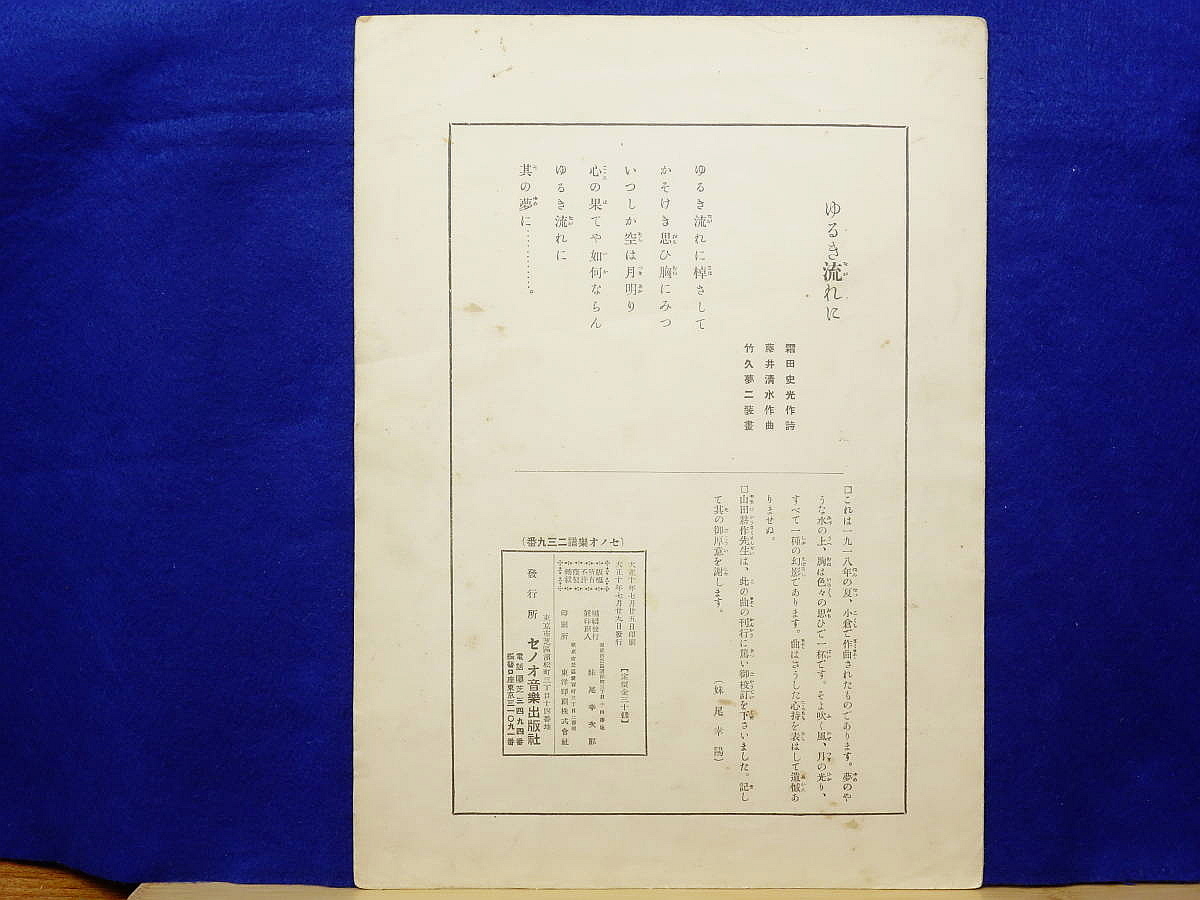 ゆるき流れに
霜田史光作詩
藤井清水作曲
竹久夢二裝畫
ゆるき流れに棹さして
かそけき思ひ胸にみつ
いつしか空は月明り
心の果てや如何ならん
ゆるき流れに
其の夢に……………。
□これは一九一八年の夏、小倉で作曲されたものであります。夢のや
うな水の上、胸は色々の思ひで一杯です。そよ吹く風、月の光り、
すべて一種の幻影であります。曲はさうした心持を表はして遺憾あ
りませぬ。
□山田耕作先生は、此の曲の刊行に篤い御校訂を下さいました。記し
て其の御厚意を謝します。
(妹尾幸陽)
(セノオ樂譜二三九番)
大正十年七月廿五日印刷
大正十年七月廿九日發行
【定價金三十錢】
版權
所有
不許
複製
轉載
編輯發行
兼印刷人
妹尾幸次郎
印刷所
東洋印刷株式會社
東京市芝區濱松町三丁目十四番地
發行所 セノオ音樂出版社
電話芝三四九四番
振替口座東京三一〇九一番